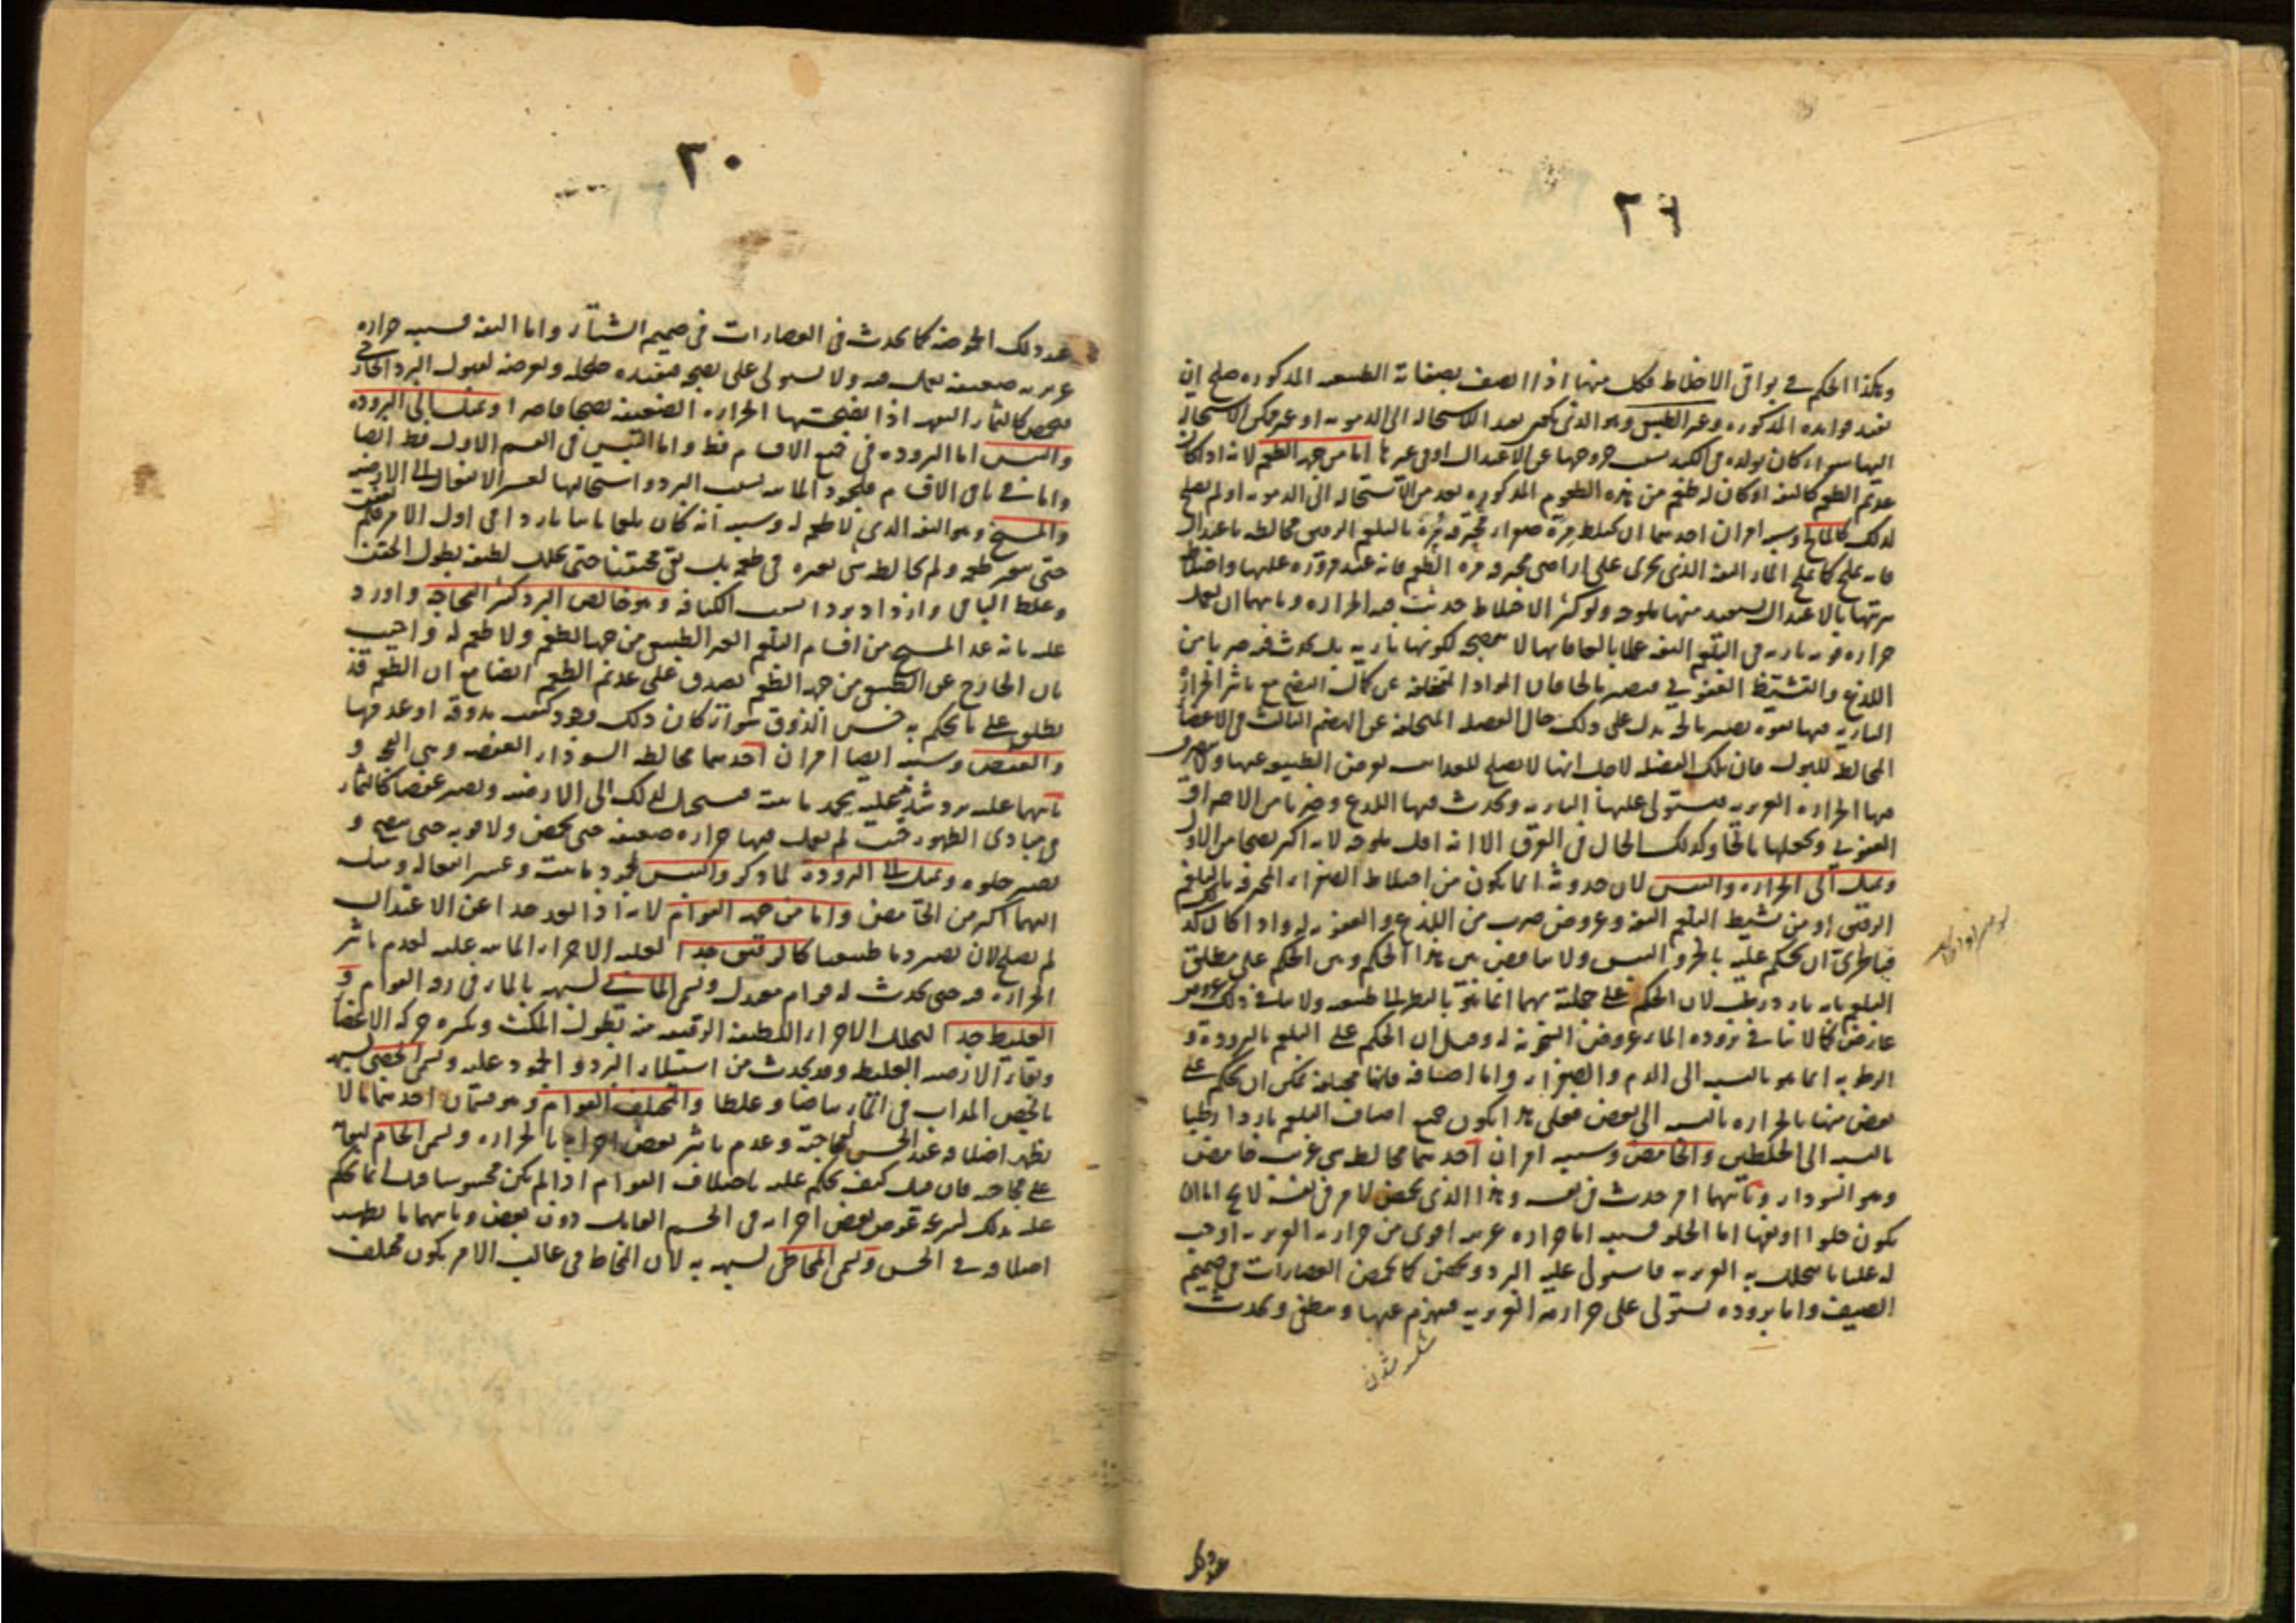 ٢٩
وهكذا الحكم في بواقي الاخلاط فكل منها اذا اتصف بصفاته الطبيعية المذكورة صلح ان
يفيد فوائده المذكورة وغير الطبيعي وهو الذي بعد الاستحالة الى الدموية او
اليها سواء كان تولده في الكبد خروجها عن الاعتدال او في غيرها اما من جهة الطعم لانه اذا كان
عديم الطعم كالتفه او كان له طعم من هذه الطعوم المذكورة بعد من الاستحالة الى الدموية او لم يصلح
لذلك كالمالح وسببه امران احدهما ان يختلط مرة صفراء محترقة مرة بالبلغم الرقيق مخالطة باعتدال
فانه يملح كما يملح الماء التفه الذي يجري على اراضي محترقة مرة الطعم فانه عند مروره عليها واختلاط
تربتها بالاعتدال يستفيد منها ملوحة ولو كثر الاختلاط حدثت فيه المرارة وثانيهما ان يعمل
حرارة قوية نارية في البلغم التفه عملا لكونها نارية بل يحدث فيه ضربا من
اللذع والتشيط العفوني فيصير مالحا فان المواد المتخلفة عن كمال النضج مع تأثير الحرارة
النارية فيها بقوة يصير مالحة يدل على ذلك حال الفضلة المتخلفة عن الهضم الثالث في الاعضاء
المخالط للبول فان تلك الفضلة لاجل انها لا يصلح للغذائية يعرض الطبيعة عنها
فيها الحرارة الغريزية فيستولي عليها النارية ويحدث فيها اللذع وضربا من الاحتراق
العفوني ويجعلها مالحا وكذلك الحال في العرق الا انه اقل ملوحة لانه اكثر نضجا من الاول
ويميل الى الحرارة واليبس لان حدوثه انما يكون من اختلاط الصفراء المحرقة بالبلغم
الرقيق او من تشيط البلغم التفه وعروض ضرب من اللذع والعفونة له واذا كان كذلك
فبالحري ان يحكم عليه بالحر واليبس ولا مناقض بين هذا الحكم وبين الحكم على مطلق
البلغم بانه بارد رطب لان الحكم على جملته بهما انما هو بالنظر الى طبيعته ولا ينافي ذلك عروض
عارض كما لا ينافي برودة الماء عروض السخونة له وقيل ان الحكم على البلغم بالبرودة و
الرطوبة انما هو بالنسبة الى الدم والصفراء واما اصنافه فانها مختلفة يمكن ان يحكم على
بعض منها بالحرارة بالنسبة الى بعض فعلى هذا يكون جميع اصناف البلغم باردا رطبا
بالنسبة الى الخلطين والحامض وسببه امران احدهما مخالطة شيء غريب حامض
وهو السوداء وثانيهما امر حدث في نفسه وهذا الذي يحمض لامر في نفسه لا يخ اما ان
يكون حلوا او تفها اما الحلو فسببه اما حرارة غريبة اقوى من حرارته الغريزية اوجب
له غليانا يتحلل به الغريزية فاستولى عليه البرد وتحمض كما تحمض العصارات في صميم
الصيف واما برودة تستولي على حرارته الغريزية فينهزم عنها وينطفي ويحدث
عند ذلك
٣٠
عند ذلك الحموضة كما يحدث في العصارات في صميم الشتاء واما التفه فسببه حرارة
غريزية ضعيفة يعمل فيه ولا يستولي على نضجه فتفيده ويعرضه لقبول البرد الخارجي
فيحمض كالثمار التفهة اذا انضجتها الحرارة الضعيفة نضجا قاصرا ويميل الى البرودة
واليبس اما البرودة ففي جميع الاقسام فظ واما اليبس ففي القسم الاول فظ ايضا
واما في باقي الاقسام فلجمود المائية بسبب البرد واستحالتها لعسر الانفعال الى الارضية
والمسيخ وهو التفه الذي لا طعم له وسببه انه كان بلغما مائيا باردا في اول الامر
حتى يتغير طعمه ولم يخالطه شيء يغيره في طعمه بل بقي محتقنا حتى تحلل لطيفه بطول الحقن
وغلظ الباقي وازداد بردا بسبب الكثافة وهو خالص البرد كثير الفجاجة واورد
عليه بانه عد المسيخ من اقسام البلغم الغير الطبيعي من جهة الطعم ولا طعم له واجيب
بان الخارج عن الطبيعي من جهة الطعم يصدق على عديم الطعم ايضا مع ان الطعم قد
يطلق على ما يحكم به حس الذوق سواء كان ذلك وجود كيفية مذوقة او عدمها
والعفص وسببه ايضا امران احدهما مخالطة السوداء العفصة وهي الفجة و
ثانيهما غلبة برد شديد عليه يجمد مائيته فيستحيل لذلك الى الارضية ويصير عفصا كالثمار
في مبادي الظهور حيث لم يعمل فيها حرارة ضعيفة حتى يحمض ولا قوية حتى ينضج و
يصير حلوة ويميل الى البرودة لما ذكر واليبس لجمود مائيته وعسر انفعاله وميله
اليهما اكثر من الحامض واما من جهة القوام لانه اذا بعد جدا عن الاعتدال
لم يصلح لان يصير دما طبيعيا كالرقيق جدا لغلبة الاجزاء المائية عليه لعدم تأثير
الحرارة فيه حتى يحدث له قوام معتدل ويسمى المائي لشبهه بالماء في القوام و
الغليظ جدا لتحلل الاجزاء اللطيفة الرقيقة منه بطول المكث وكثرة حركة الاعضاء
وبقاء الارضية الغليظة وقد يحدث من استيلاء البرد والجمود عليه ويسمى الجصي لشبهه
بالجص المذاب في الماء بياضا وغلظا والمختلف القوام وهو قسمان احدهما ما لا
يظهر اختلافه عند الحس لفجاجته وعدم تأثير بعض اجزائه بالحرارة ويسمى الخام لبقائه
على فجاجته فان قيل كيف يحكم عليه باختلاف القوام اذا لم يكن محسوسا قيل انما يحكم
عليه بذلك لسرعة غوص بعض اجزائه في الجسم القابل دون بعض وثانيهما ما يظهر
اختلافه في الحس ويسمى المخاطي لشبهه به لان المخاط في غالب الامر يكون مختلف